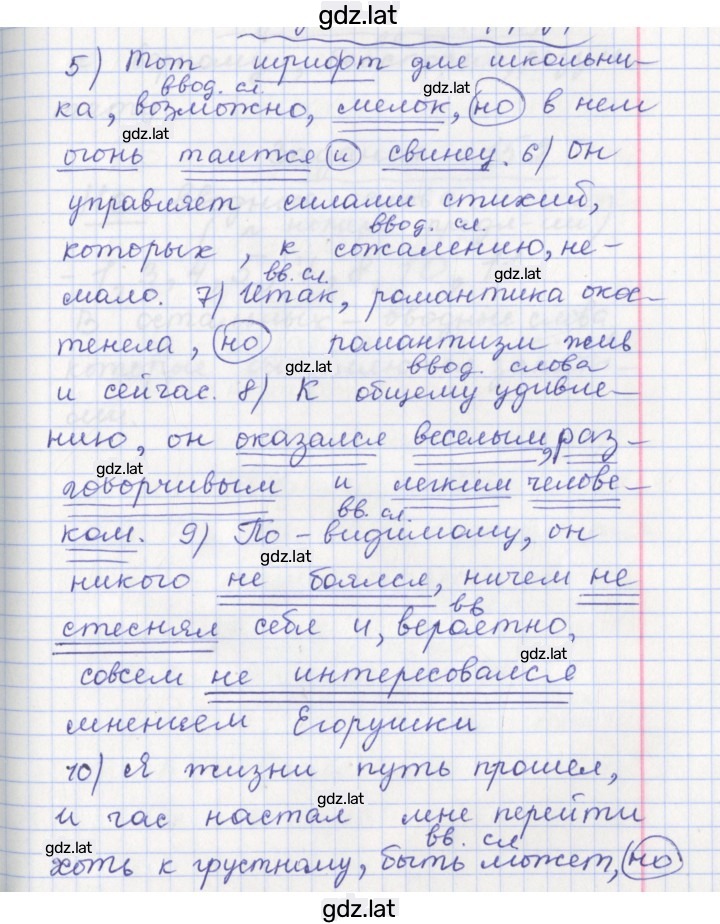 gdz.lat
5) Тот шрифт для школьни-
ввод. сл. gdz.lat
ка, возможно, мелок, но в нем
gdz.lat
огонь таится и свинец. 6) Он
управляет силами стихий,
ввод. сл.
которых, к сожалению, не-
вв. сл. gdz.lat
мало. 7) Итак, романтика окос-
тенела, но романтизм жив
gdz.lat ввод. слова
и сейчас. 8) К общему удивле-
нию, он оказался веселым, раз-
gdz.lat
говорчивым и легким челове-
вв. сл.
ком. 9) По-видимому, он
gdz.lat
никого не боялся, ничем не
вв
стеснял себя и, вероятно,
gdz.lat
совсем не интересовался
мнением Егорушки
10) Я жизни путь прошел,
gdz.lat
и час настал мне перейти
gdz.lat вв. сл
хоть к грустному, быть может, но
gdz.lat